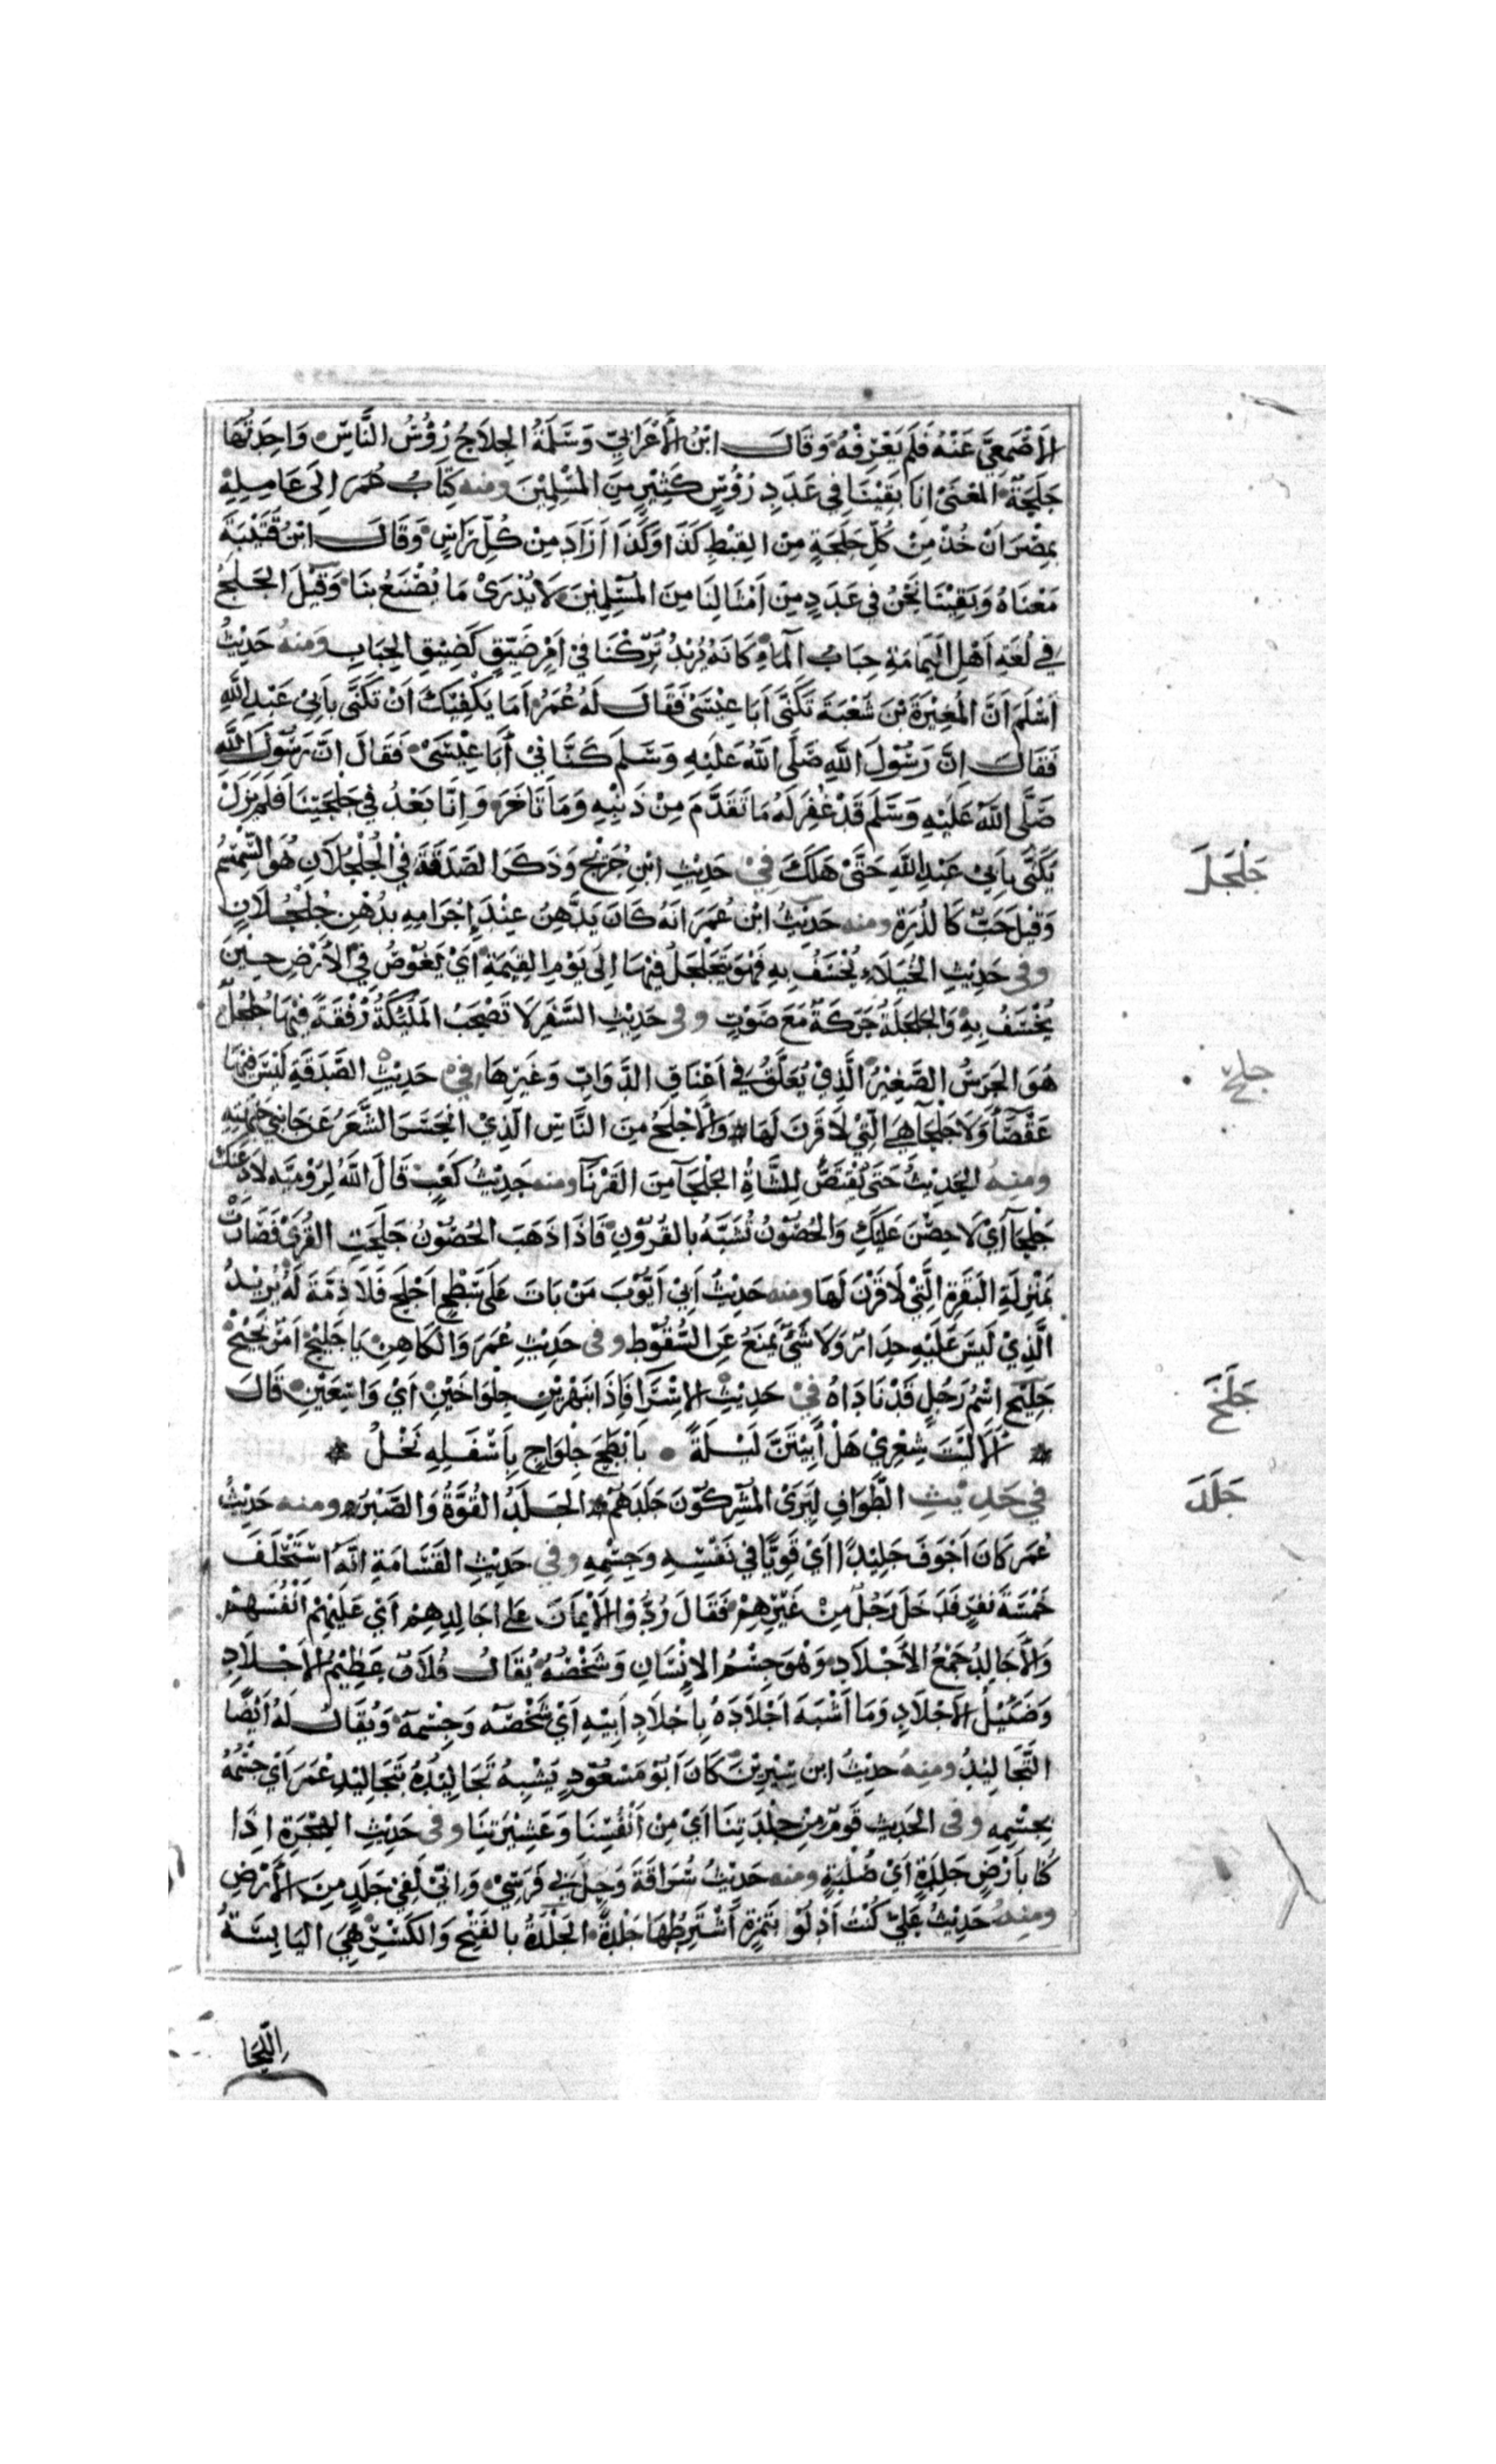 الاَصْمَعِيَّ عَنْهُ فَلَم يَعْرِفْهُ وَقَالَ ابْنُ الأَعْرَابِيِّ وَسَلَمَةُ الجِلَاجُ رُؤُسُ النَّاسِ وَاحِدَتُهَا
جَلَجَةٌ المعْنَى انا بَقِيْنَا فِي عَدَدِ رُؤُسٍ كَثِيْرٍ مِنَ المُسْلِمِيْنَ ومنه كِتَابُ عُمَرَ اِلَى عَامِلِهِ
بِمِصْرَ اَنْ خُذْ مِنْ كُلِّ جَلَجَةٍ مِنَ القِبْطِ كَذَا وَكَذَا اَرَادَ مِنْ كُلِّ رَاسٍ وَقَالَ ابْنُ قُتَيْبَةَ
مَعْنَاهُ وَبَقِيْنَا نَحْنُ فِي عَدَدٍ مِنْ اَمْثَالِنَا مِنَ المُسْلِمِيْنَ لَا يُدْرَى مَا يُصْنَعُ بِنَا وَقِيْلَ الجَلَجُ
فِي لُغَةِ اَهْلِ اليَمَامَةِ حِبَابُ المَاءِ كَانَهُ يُرِيْدُ تُرِكْنَا فِي اَمْرٍ ضَيِّقٍ كَضِيْقِ الحِبَابِ وَمنه حَدِيْثُ
اَسْلَمَ اَنَّ المُغِيْرَةَ بْنَ شُعْبَةَ تَكَنَّى اَبَا عِيْسَى فَقَالَ لَهُ عُمَرُ اَمَا يَكْفِيْكَ اَنْ تَكَنَّى بِاَبِيْ عَبْدِ اللهِ
فَقَالَ اِنَّ رَسُوْلَ اللهِ صَلَّى اللهُ عَلَيْهِ وَسَلَّمَ كَنَّانِيْ أَبَا عِيْسَى فَقَالَ اِنَّ رَسُوْلَ اللهِ
صَلَّى اللهُ عَلَيْهِ وَسَلَّمَ قَدْ غُفِرَ لَهُ مَا تَقَدَّمَ مِنْ ذَنْبِهِ وَمَا تَاخَّرَ وَاِنَّا بَعْدُ فِي جَلَجَتِنَا فَلَمْ يَزَلْ
يُكَنَّى بِاَبِيْ عَبْدِ اللهِ حَتَّى هَلَكَ فِيْ حَدِيْثِ ابْنِ جُرَيْجٍ وَذَكَرَ الصَّدَقَةَ فِي الجُلْجُلَانِ هُوَ السِّمْسِمُ
جَلْجَلَ
وَقِيْلَ حَبٌّ كَالذُرَةِ ومنه حَدِيْثُ ابْنِ عُمَرَ انَهُ كَانَ يَدَّهِنُ عِنْدَ اِحْرَامِهِ بِدُهْنِ جُلْجُلَانٍ
وفى حَدِيْثِ الخُيَلَاءِ يُخْسَفُ بِهِ فَهُوَ يَتَجَلْجَلُ فِيْهَا اِلَى يَوْمِ القِيمَةِ اَيْ يَغُوْصُ فِي الأَرْضِ حِيْنَ
يُخْسَفُ بِهِ وَالجَلْجَلَةُ حَرَكَةٌ مَعَ صَوْتٍ وفى حَدِيْثِ السَّفَرِ لَا تَصْحَبُ المَلٰئِكَةُ رُفْقَةً فِيْهَا جُلْجُلٌ
هُوَ الجَرَسُ الصَّغِيْرُ الَّذِيْ يُعَلَّقُ فِي اَعْنَاقِ الدَّوَابِّ وَغَيْرِهَا فِيْ حَدِيْثِ الصَّدَقَةِ لَيْسَ فِيْهَا
جلح
عَقْصَاءُ وَلَا جَلْحَاءُ هِيَ الَّتِيْ لَا قَرْنَ لَهَا وَالاَجْلَحُ مِنَ النَّاسِ الَّذِيْ انْحَسَرَ الشَّعَرُ عَنْ جَانِبَيْ جَبِيْنِهِ
ومنه الحَدِيْثُ حَتَى يُقْتَصَّ لِلشَّاةِ الجَلْحَاءِ مِنَ القَرْنَاءِ ومنه حَدِيْثُ كَعْبٍ قَالَ اللهُ لِرُوْمِيَّةَ لَاَدَعَنَّكِ
جَلْحَاءَ اَيْ لَا حِصْنَ عَلَيْكِ وَالحُصُوْنُ تُشَبَّهُ بِالقُرُوْنِ فَاِذَا ذَهَبَ الحُصُوْنُ جَلِحَتِ القُرَى فَصَارَتْ
بِمَنْزِلَةِ البَقَرَةِ الَّتِيْ لَا قَرْنَ لَهَا ومنه حَدِيْثُ اَبِيْ اَيُّوْبَ مَنْ بَاتَ عَلَى سَطْحٍ اَجْلَحَ فَلَا ذِمَّةَ لَهُ يُرِيْدُ
الَّذِيْ لَيْسَ عَلَيْهِ جِدَارٌ وَلَا شَيْءٌ يَمْنَعُ عَنِ السُّقُوْطِ وفى حَدِيْثِ عُمَرَ وَالكَاهِنِ يَا جَلِيْحْ اَمْرٌ نَجِيْحْ
جَلِيْحُ اسْمُ رَجُلٍ قَدْ نَادَاهُ فِيْ حَدِيْثِ الاِسْرَاءِ فَاِذَا بِنَهْرَيْنِ جِلْوَاخَيْنِ اَيْ وَاسِعَيْنِ قَالَ
جَلَخَ
اَلَا لَيْتَ شِعْرِيْ هَلْ أَبِيْتَنَّ لَيْلَةً بِاَبْطَحَ جِلْوَاخٍ بِاَسْفَلِهِ نَخْلُ
في حَدِيْثِ الطَّوَافِ لِيَرَى المُشْرِكُوْنَ جَلَدَهُمْ الجَلَدُ القُوَّةُ وَالصَّبْرُ ومنه حَدِيْثُ
جَلَدَ
عُمَرَ كَانَ اَجْوَفَ جَلِيْدًا اَيْ قَوِيًّا فِي نَفْسِهِ وَجِسْمِهِ وفي حَدِيْثِ القَسَامَةِ انَّهُ اسْتَحْلَفَ
خَمْسَةَ نَفَرٍ فَدَخَلَ رَجُلٌ مِنْ غَيْرِهِمْ فَقَالَ رُدُّوْا الأَيْمَانَ عَلَى اَجَالِدِهِمْ اَيْ عَلَيْهِمْ اَنْفُسَهُمْ
وَالأَجَالِدُ جَمْعُ الأَجْلَادِ وَهُوَ جِسْمُ الاِنْسَانِ وَشَخْصُهُ يُقَالُ فُلَانٌ عَظِيْمُ الأَجْلَادِ
وَضَئِيْلُ الاَجْلَادِ وَمَا اَشْبَهَ اَجْلَادَهُ بِاَجْلَادِ اَبِيْهِ اَيْ شَخْصَهُ وَجِسْمَهُ وَيُقَالُ لَهُ اَيْضًا
التَّجَالِيْدُ ومنه حديْثُ ابن سِيْرِيْنَ كَانَ اَبُوْ مَسْعُوْدٍ يُشْبِهُ تَجَالِيْدُهُ تَجَالِيْدَ عُمَرَ اَيْ جِسْمُهُ
بِجِسْمِهِ وفى الحَدِيث قَوْمٌ مِنْ جِلْدَتِنَا اَيْ مِنْ اَنْفُسِنَا وَعَشِيْرَتِنَا وفى حَدِيْثِ الهِجْرَةِ اِذَا
كُنَّا بِاَرْضٍ جَلْدَةٍ اَيْ صُلْبَةٍ ومنه حَدِيْثُ سُرَاقَةَ وَحِلَ بِيْ فَرَسِيْ وَاِنِّيْ لَفِيْ جَلَدٍ مِنَ الأَرْضِ
ومنه حَدِيْثُ عَلِيٍّ كُنْتُ اَدْلُوْا بِتَمْرَةٍ اَشْتَرِطُهَا جَلْدَةً الجَلْدَةُ بِالفَتْحِ وَالكَسْرِ هِيَ اليَابِسَةُ
اللِّحَا